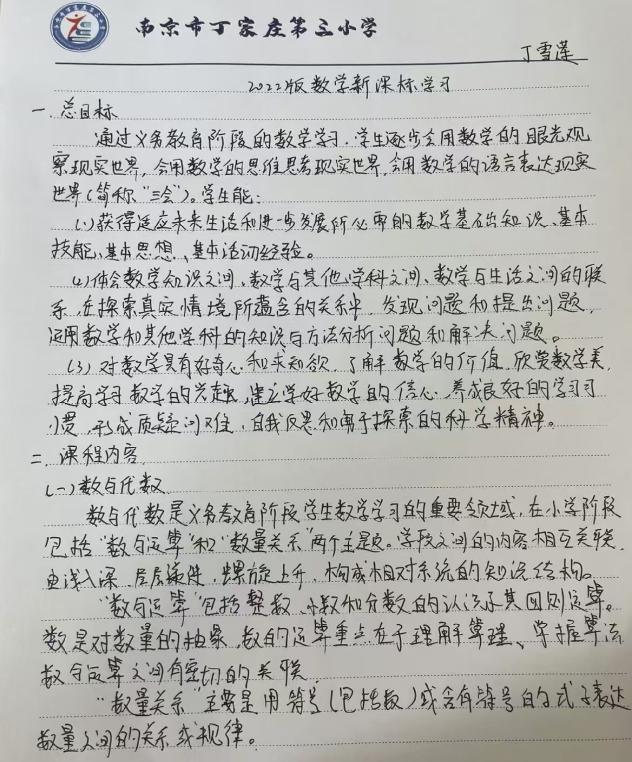 南京市丁家庄第三小学
丁雪莲
2022版数学新课标学习
一.总目标
通过义务教育阶段的数学学习,学生逐步会用数学的眼光观
察现实世界,会用数学的思维思考现实世界,会用数学的语言表达现实
世界(简称“三会”)。学生能:
(1)获得适应未来生活和进一步发展所必需的数学基础知识、基本
技能、基本思想、基本活动经验。
(2)体会数学知识之间、数学与其他学科之间、数学与生活之间的联
系,在探索真实情境所蕴含的关系中,发现问题和提出问题,
运用数学和其他学科的知识与方法分析问题和解决问题。
(3)对数学具有好奇心和求知欲,了解数学的价值,欣赏数学美,
提高学习数学的兴趣,建立学好数学的信心,养成良好的学习习
惯,形成质疑问难、自我反思和勇于探索的科学精神。
二.课程内容
(一)数与代数
数与代数是义务教育阶段学生数学学习的重要领域,在小学阶段
包括“数与运算”和“数量关系”两个主题。学段之间的内容相互关联,
由浅入深,层层递进,螺旋上升,构成相对系统的知识结构。
“数与运算”包括整数、小数和分数的认识及其四则运算。
数是对数量的抽象,数的运算重点在于理解算理、掌握算法
数与运算之间有密切的关联.
“数量关系”主要是用符号(包括数)或含有符号的式子表达
数量之间的关系或规律。